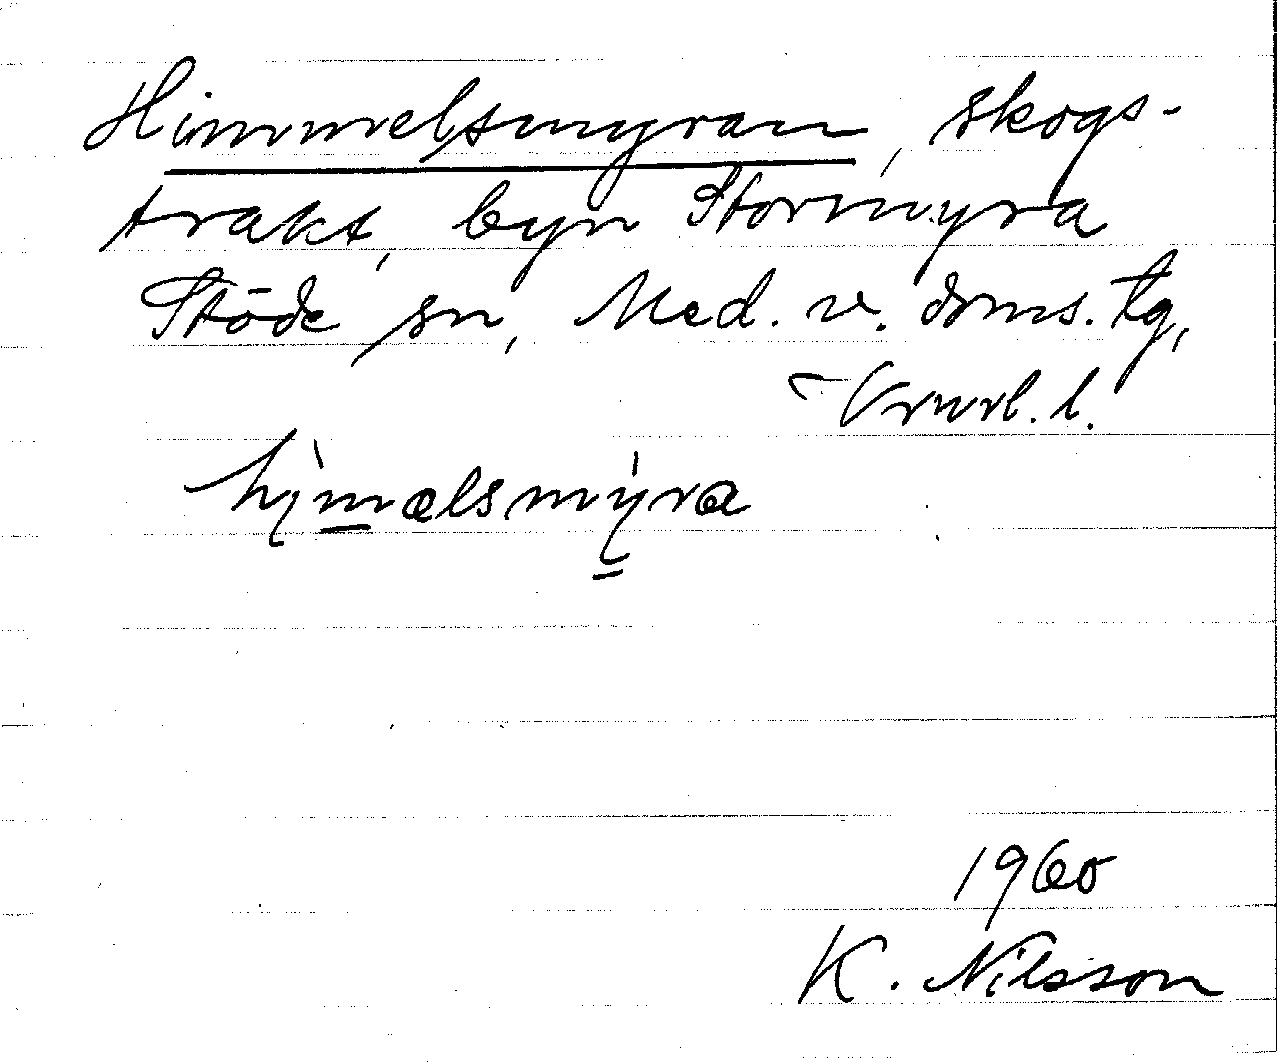 Himmelsmyran, skogs-
trakt, byn Stormyra
Stöde sn, Med. v. doms. tg,
Vrnrl. l.
hįmælsmyra
1960
K. Nilsson